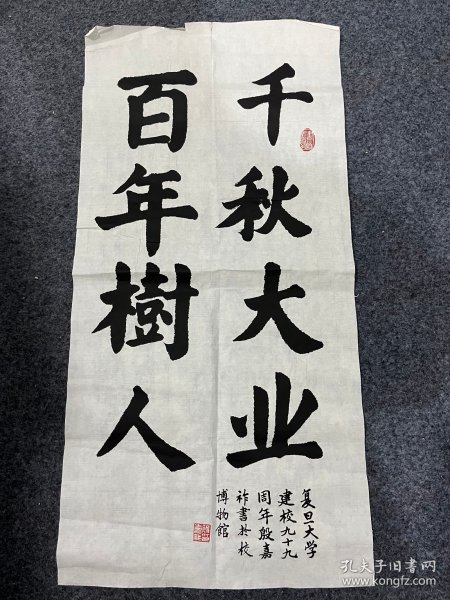 千秋大业
百年樹人
复旦大学
建校九十九
周年殷嘉
祚書於校
博物館
孔夫子旧书网
www.kongfz.com